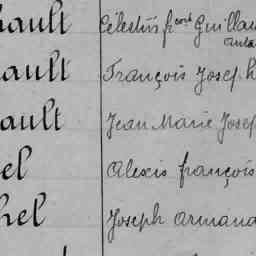 hault Célestin fcois Guillau
hault François Joseph
ault Jean Marie Josep
el Alexis françois
hel Joseph Armand